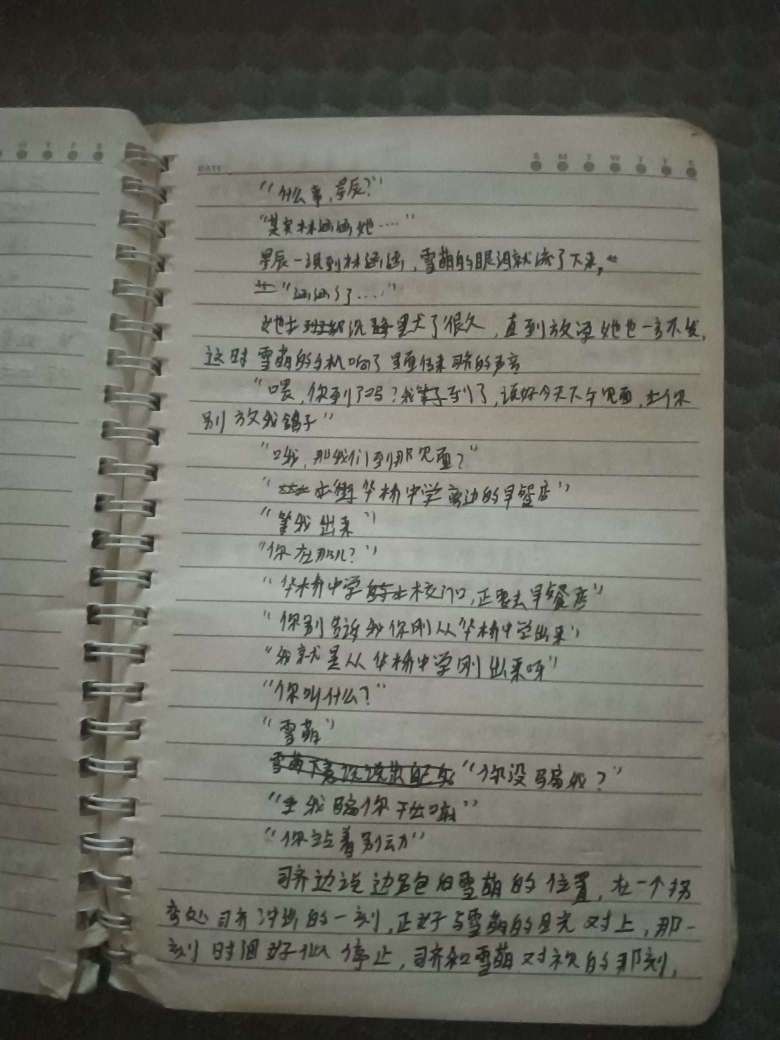 DATE S M T W T F S
"什么事,星辰?"
"其实林涵涵她……"
星辰一说到林涵涵,雪萌的眼泪就流了下来,
"涵涵她……"
哭了很久,直到放学她也一言不发,
这时雪萌的手机响了里面传来司齐的声音
"喂,你到了吗?我到了,说好今天下午见面,你
别放我鸽子"
"哦,那我们到那见面?"
"华桥中学旁边的早餐店"
"等我出来"
"你在那儿?"
"华桥中学校门口,正要去早餐店"
"你别告诉我你刚从华桥中学出来"
"我就是从华桥中学刚出来呀"
"你叫什么?"
"雪萌"
"你没骗我?"
"我骗你干出嘛"
"你站着别动"
司齐边说边跑向雪萌的位置,在一个拐
弯处司齐冲出的一刻,正好与雪萌的目光对上,那一
刻时间好似停止,司齐和雪萌对视的那刻,